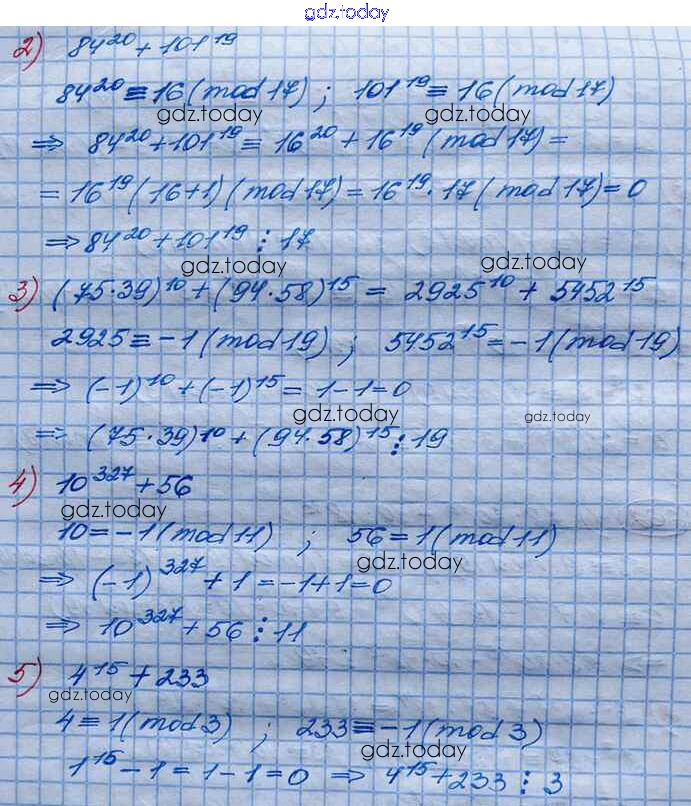 gdz.today
2) 84²⁰ + 101¹⁹
84²⁰ ≡ 16 (mod 17) ; 101¹⁹ ≡ 16 (mod 17)
gdz.today gdz.today
⇒ 84²⁰ + 101¹⁹ ≡ 16²⁰ + 16¹⁹ (mod 17) =
= 16¹⁹ (16+1) (mod 17) = 16¹⁹ · 17 (mod 17) = 0
⇒ 84²⁰ + 101¹⁹ ⋮ 17
gdz.today gdz.today
3) (75·39)¹⁰ + (94·58)¹⁵ = 2925¹⁰ + 5452¹⁵
2925 ≡ -1 (mod 19) ; 5452¹⁵ = -1 (mod 19)
⇒ (-1)¹⁰ + (-1)¹⁵ = 1 - 1 = 0
gdz.today gdz.today
⇒ (75·39)¹⁰ + (94·58)¹⁵ ⋮ 19
4) 10³²⁷ + 56
gdz.today
10 = -1 (mod 11) ; 56 = 1 (mod 11)
gdz.today
⇒ (-1)³²⁷ + 1 = -1 + 1 = 0
⇒ 10³²⁷ + 56 ⋮ 11
5) 4¹⁵ + 233
gdz.today
4 ≡ 1 (mod 3) ; 233 ≡ -1 (mod 3)
gdz.today
1¹⁵ - 1 = 1 - 1 = 0 ⇒ 4¹⁵ + 233 ⋮ 3